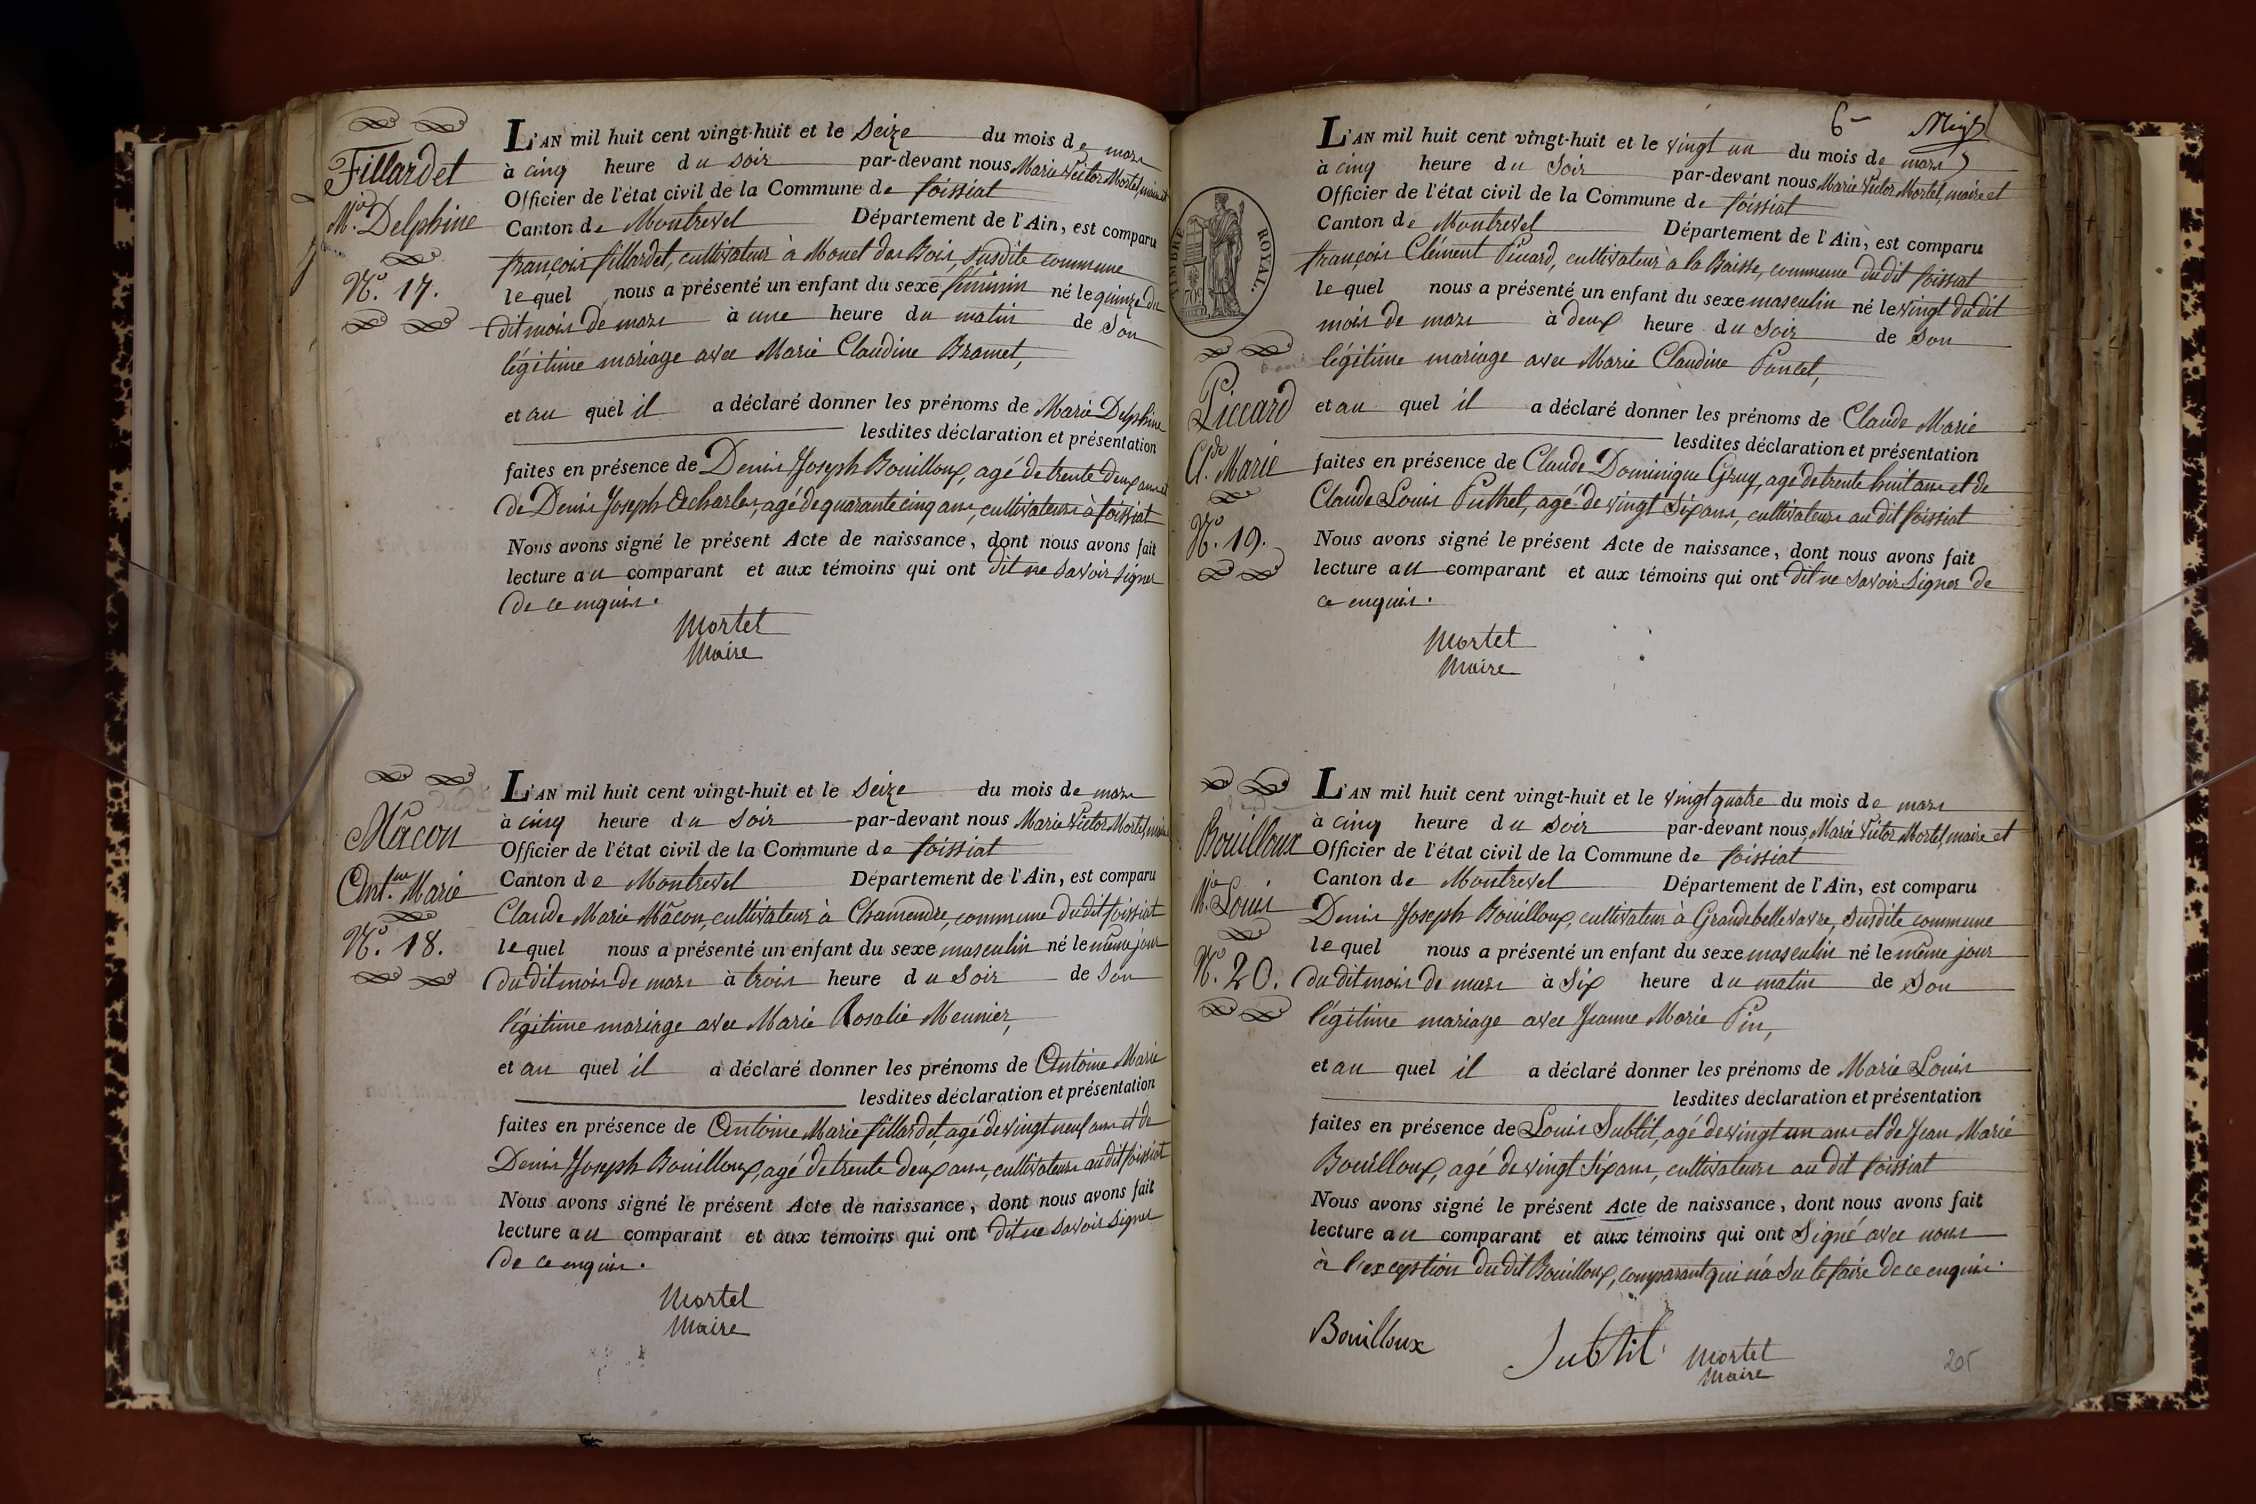 Fillardet
Mie Delphine
No. 17.
L'AN mil huit cent vingt-huit et le Seize du mois de mars
à cinq heure du Soir par-devant nous Marie Victor Mortel, maire et
Officier de l'état civil de la Commune de foissiat
Canton de Montrevel Département de l'Ain, est comparu
françois fillardet, cultivateur à Monet des Bois, susdite commune
lequel nous a présenté un enfant du sexe féminin né le quinze du
dit mois de mars à une heure du matin de Son
légitime mariage avec Marie Claudine Bramet,
et au quel il a déclaré donner les prénoms de Marie Delphine
lesdites déclaration et présentation
faites en présence de Denis Joseph Bouilloux, agé de trente deux ans et
de Denis Joseph Decharles, agé de quarante cinq ans, cultivateurs à foissiat
Nous avons signé le présent Acte de naissance, dont nous avons fait
lecture au comparant et aux témoins qui ont dit ne savoir signer
de ce enquis.
Mortel
Maire
Mâcon
Ant.ne Marie
No. 18.
L'AN mil huit cent vingt-huit et le Seize du mois de mars
à cinq heure du Soir par-devant nous Marie Victor Mortel, maire
Officier de l'état civil de la Commune de foissiat
Canton de Montrevel Département de l'Ain, est comparu
Claude Marie Mâcon, cultivateur à Chamandre, commune du dit foissiat
lequel nous a présenté un enfant du sexe masculin né le même jour
du dit mois de mars à trois heure du Soir de Son
légitime mariage avec Marie Rosalie Meunier,
et au quel il a déclaré donner les prénoms de Antoine Marie
lesdites déclaration et présentation
faites en présence de Antoine Marie fillardet, agé de vingt neuf ans et de
Denis Joseph Bouilloux, agé de trente deux ans, cultivateurs au dit foissiat
Nous avons signé le présent Acte de naissance, dont nous avons fait
lecture au comparant et aux témoins qui ont dit ne savoir signer
de ce enquis.
Mortel
Maire
6
TIMBRE ROYAL.
Piccard
Cl.de Marie
No. 19.
L'AN mil huit cent vingt-huit et le vingt un du mois de mars
à cinq heure du Soir par-devant nous Marie Victor Mortel, maire et
Officier de l'état civil de la Commune de foissiat
Canton de Montrevel Département de l'Ain, est comparu
françois Clément Piccard, cultivateur à la Baisse, commune du dit foissiat
lequel nous a présenté un enfant du sexe masculin né le vingt du dit
mois de mars à deux heure du Soir de Son
légitime mariage avec Marie Claudine Poncet,
et au quel il a déclaré donner les prénoms de Claude Marie
lesdites déclaration et présentation
faites en présence de Claude Dominique Gruy, agé de trente huit ans et de
Claude Louis Puthet, agé de vingt Six ans, cultivateurs au dit foissiat
Nous avons signé le présent Acte de naissance, dont nous avons fait
lecture au comparant et aux témoins qui ont dit ne savoir signer de
ce enquis.
Mortel
Maire
Bouilloux
M.ie Louis
No. 20.
L'AN mil huit cent vingt-huit et le vingt quatre du mois de mars
à cinq heure du Soir par-devant nous Marie Victor Mortel, maire et
Officier de l'état civil de la Commune de foissiat
Canton de Montrevel Département de l'Ain, est comparu
Denis Joseph Bouilloux, cultivateur à Grandebellevavre, Susdite commune
lequel nous a présenté un enfant du sexe masculin né le même jour
du dit mois de mars à Six heure du matin de Son
légitime mariage avec Jeanne Marie Pin,
et au quel il a déclaré donner les prénoms de Marie Louis
lesdites déclaration et présentation
faites en présence de Louis Subtil, agé de vingt un ans et de Jean Marie
Bouilloux, agé de vingt Six ans, cultivateurs au dit foissiat
Nous avons signé le présent Acte de naissance, dont nous avons fait
lecture au comparant et aux témoins qui ont Signé avec nous
à l'exception du dit Bouilloux, comparant qui n'a Su le faire de ce enquis.
Bouilloux
Subtil
Mortel
Maire
205